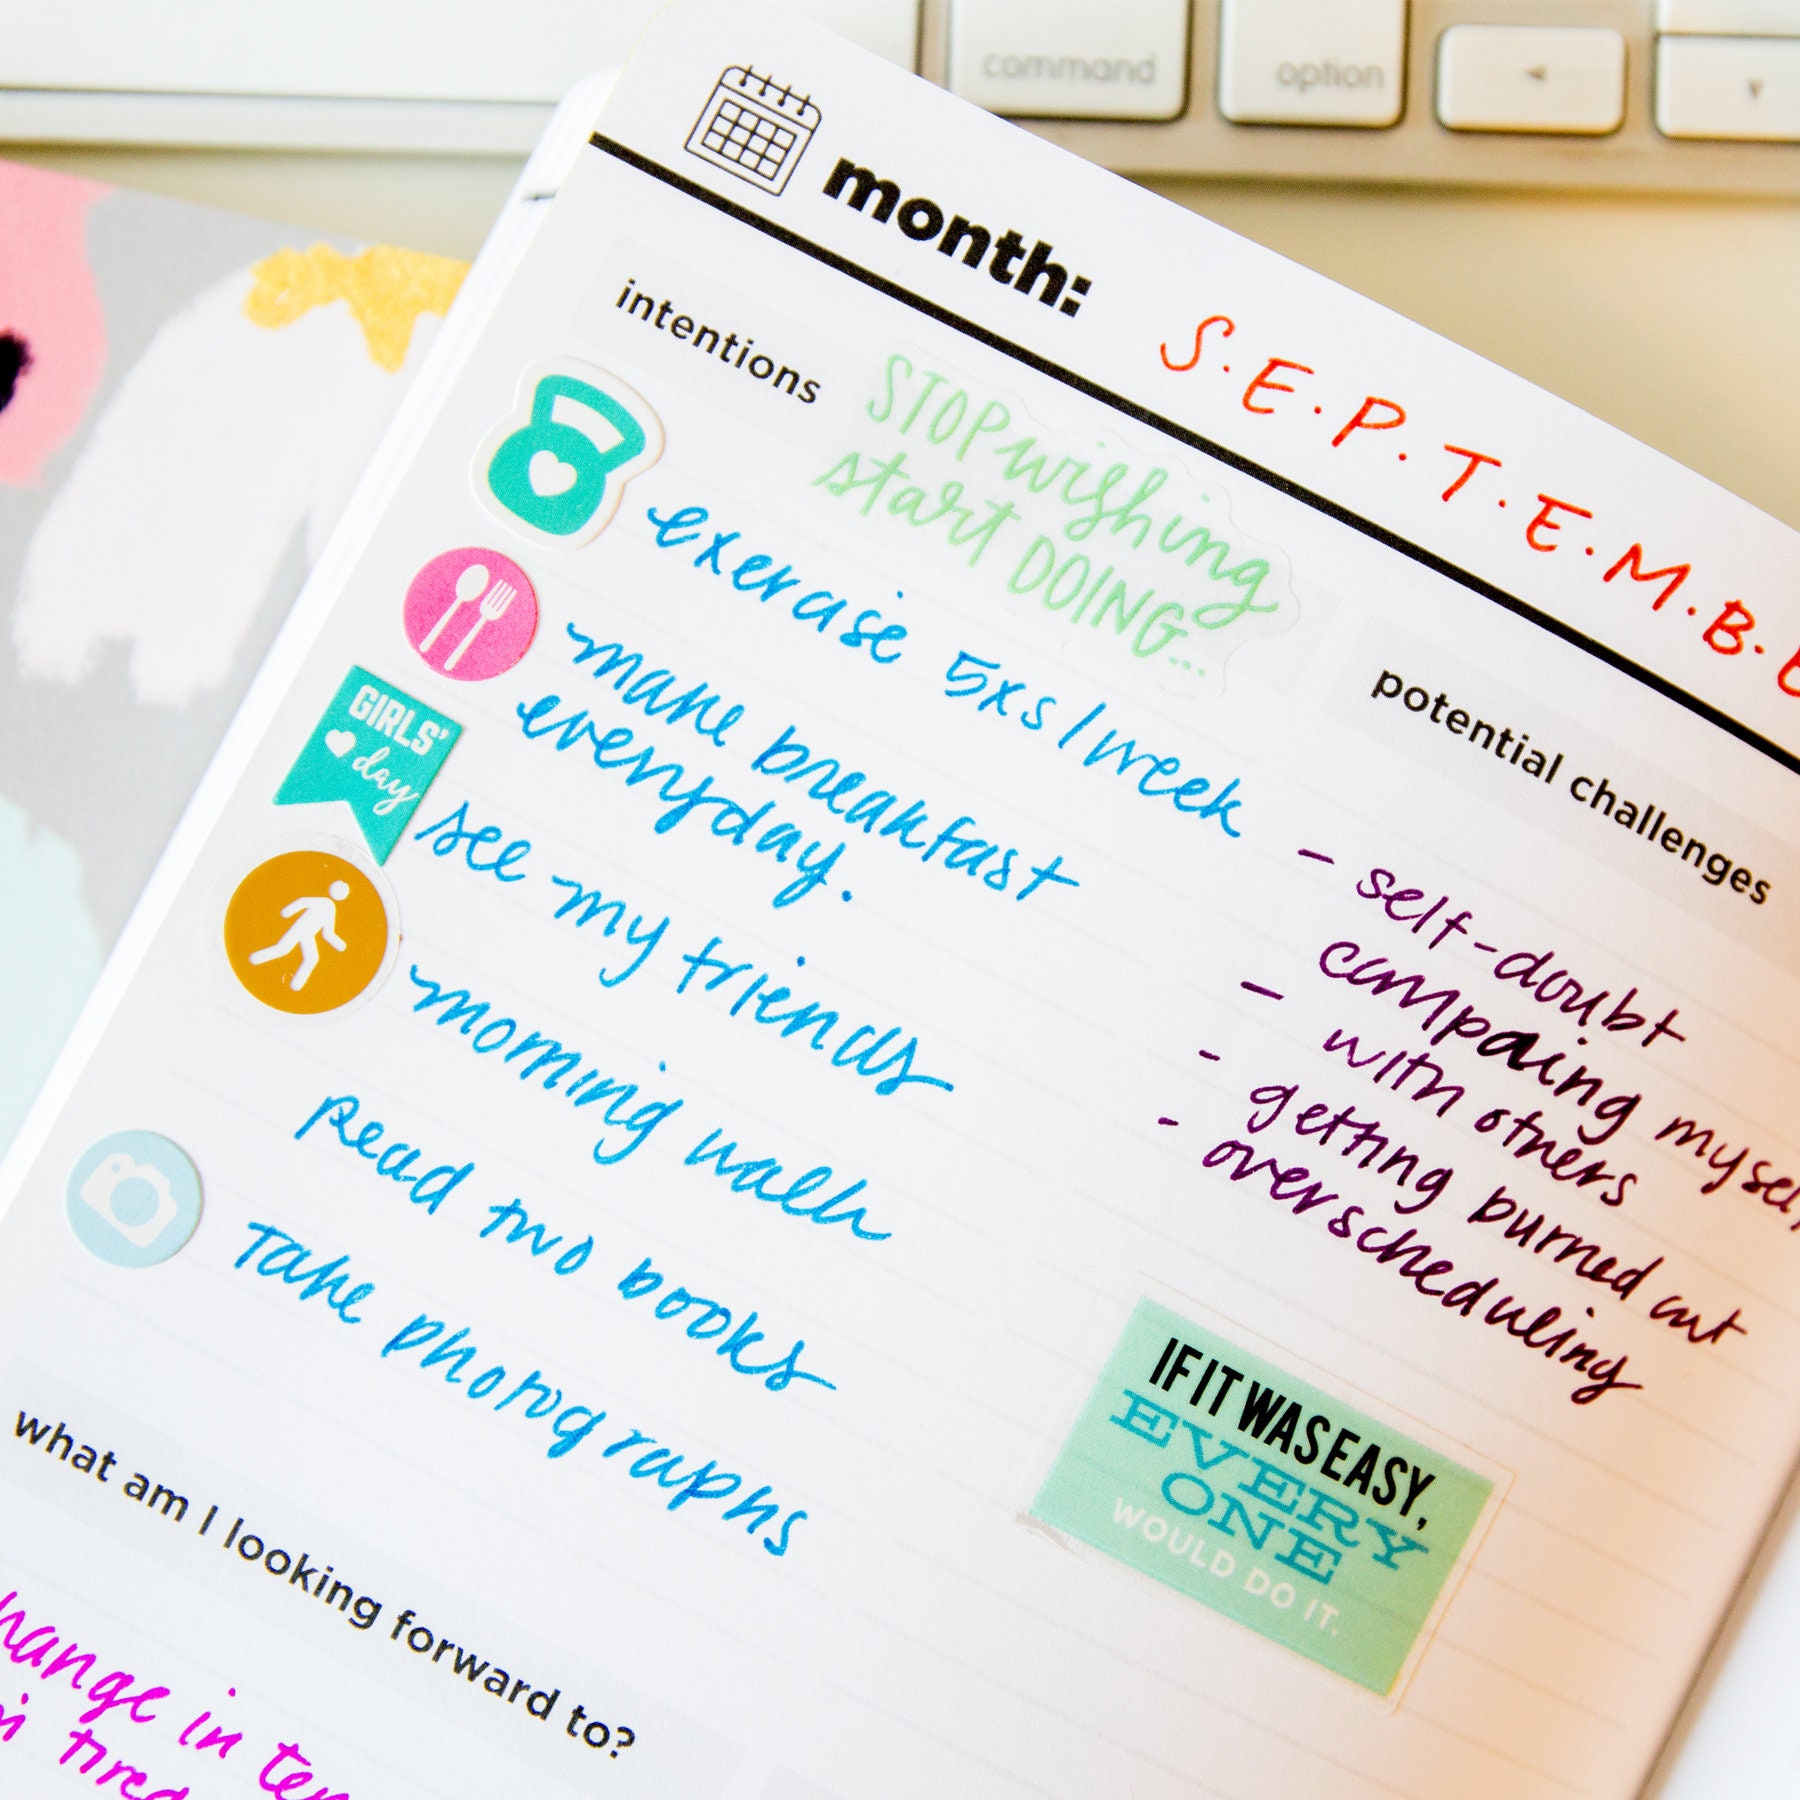 command
option
month:
S.E.P.T.E.M.B.E
intentions
STOP wishing
start DOING...
exercise 5xs/week
make breakfast
everyday.
GIRLS'
day
see my friends
morning walk
read two books
Take photographs
potential challenges
- self-doubt
- compaing myself
with others
- getting burned out
- overscheduling
IF IT WAS EASY,
EVERY
ONE
WOULD DO IT.
what am I looking forward to?
in
tired